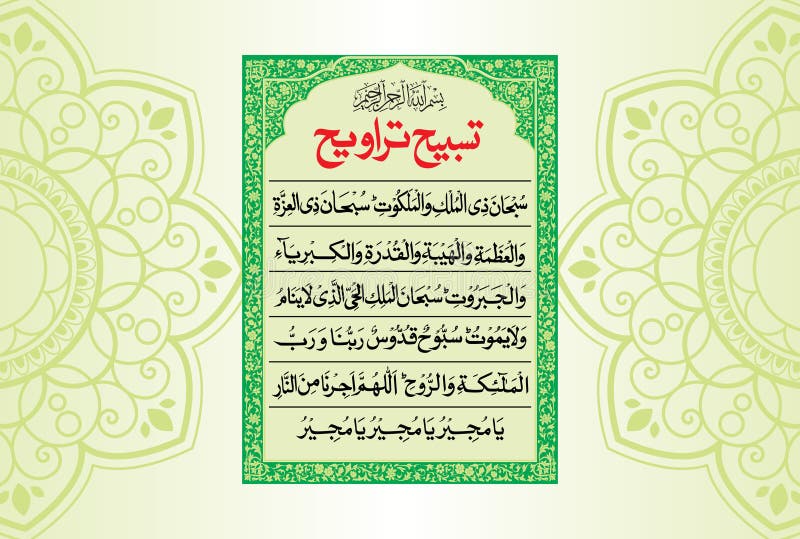 بِسْمِ اللهِ الرَّحْمٰنِ الرَّحِيْمِ
تسبیح تراویح
سُبْحَانَ ذِی الْمُلْكِ وَالْمَلَكُوْتِ ط سُبْحَانَ ذِی الْعِزَّةِ
وَالْعَظَمَةِ وَالْهَيْبَةِ وَالْقُدْرَةِ وَالْكِبْرِيَآءِ
وَالْجَبَرُوْتِ ط سُبْحَانَ الْمَلِكِ الْحَیِّ الَّذِیْ لَا يَنَامُ
وَلَا يَمُوْتُ ط سُبُّوْحٌ قُدُّوْسٌ رَبُّنَا وَ رَبُّ
الْمَلٰٓئِكَةِ وَالرُّوْحِ ط اَللّٰهُمَّ اَجِرْنَا مِنَ النَّارِ
يَا مُجِيْرُ يَا مُجِيْرُ يَا مُجِيْرُ